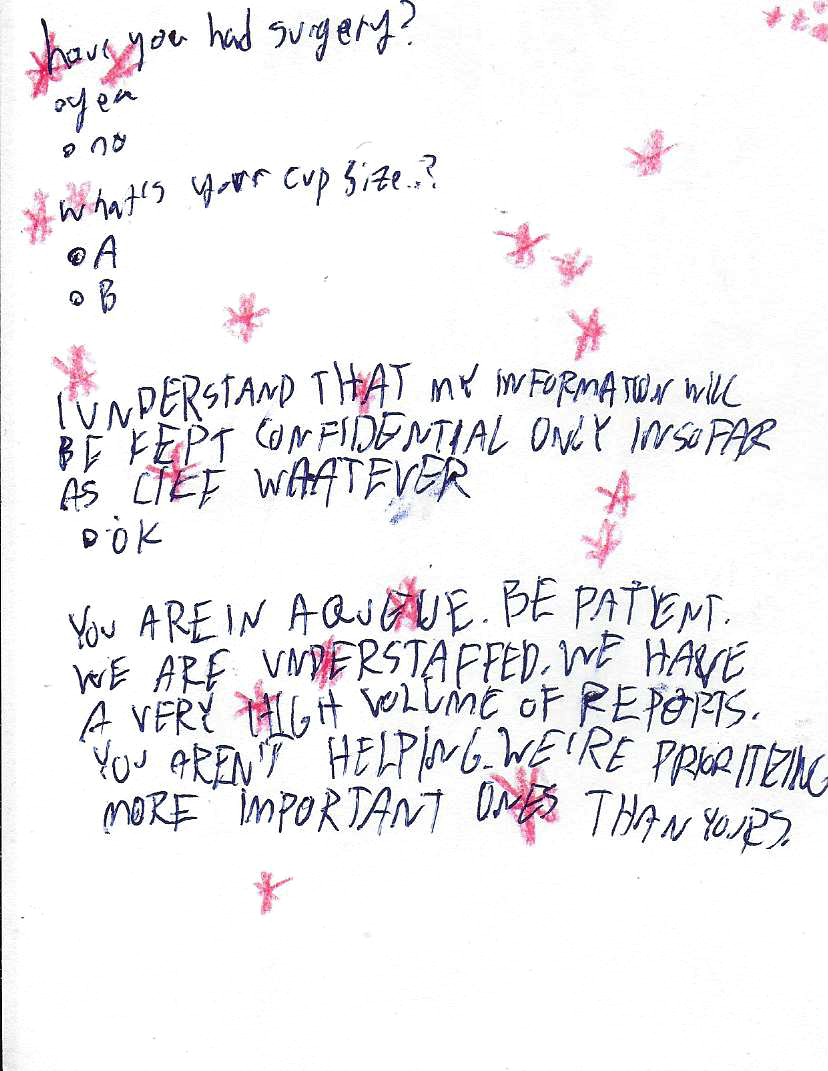 have you had surgery?
○yea
○ no
what's your cup size..?
○ A
○ B
I UNDERSTAND THAT MY INFORMATION WILL
BE KEPT CONFIDENTIAL ONLY INSOFAR
AS WHATEVER
○ OK
YOU ARE IN A QUEUE. BE PATIENT.
WE ARE UNDERSTAFFED. WE HAVE
A VERY HIGH VOLUME OF REPORTS.
YOU AREN'T HELPING. WE'RE PRIORITIZING
MORE IMPORTANT ONES THAN YOURS.